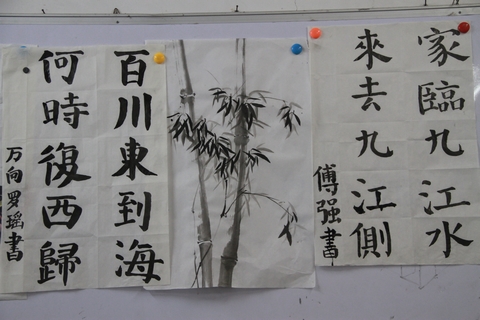 家臨九江水
來去九江側
傅强書
百川東到海
何時復西歸
万向罗瑶書